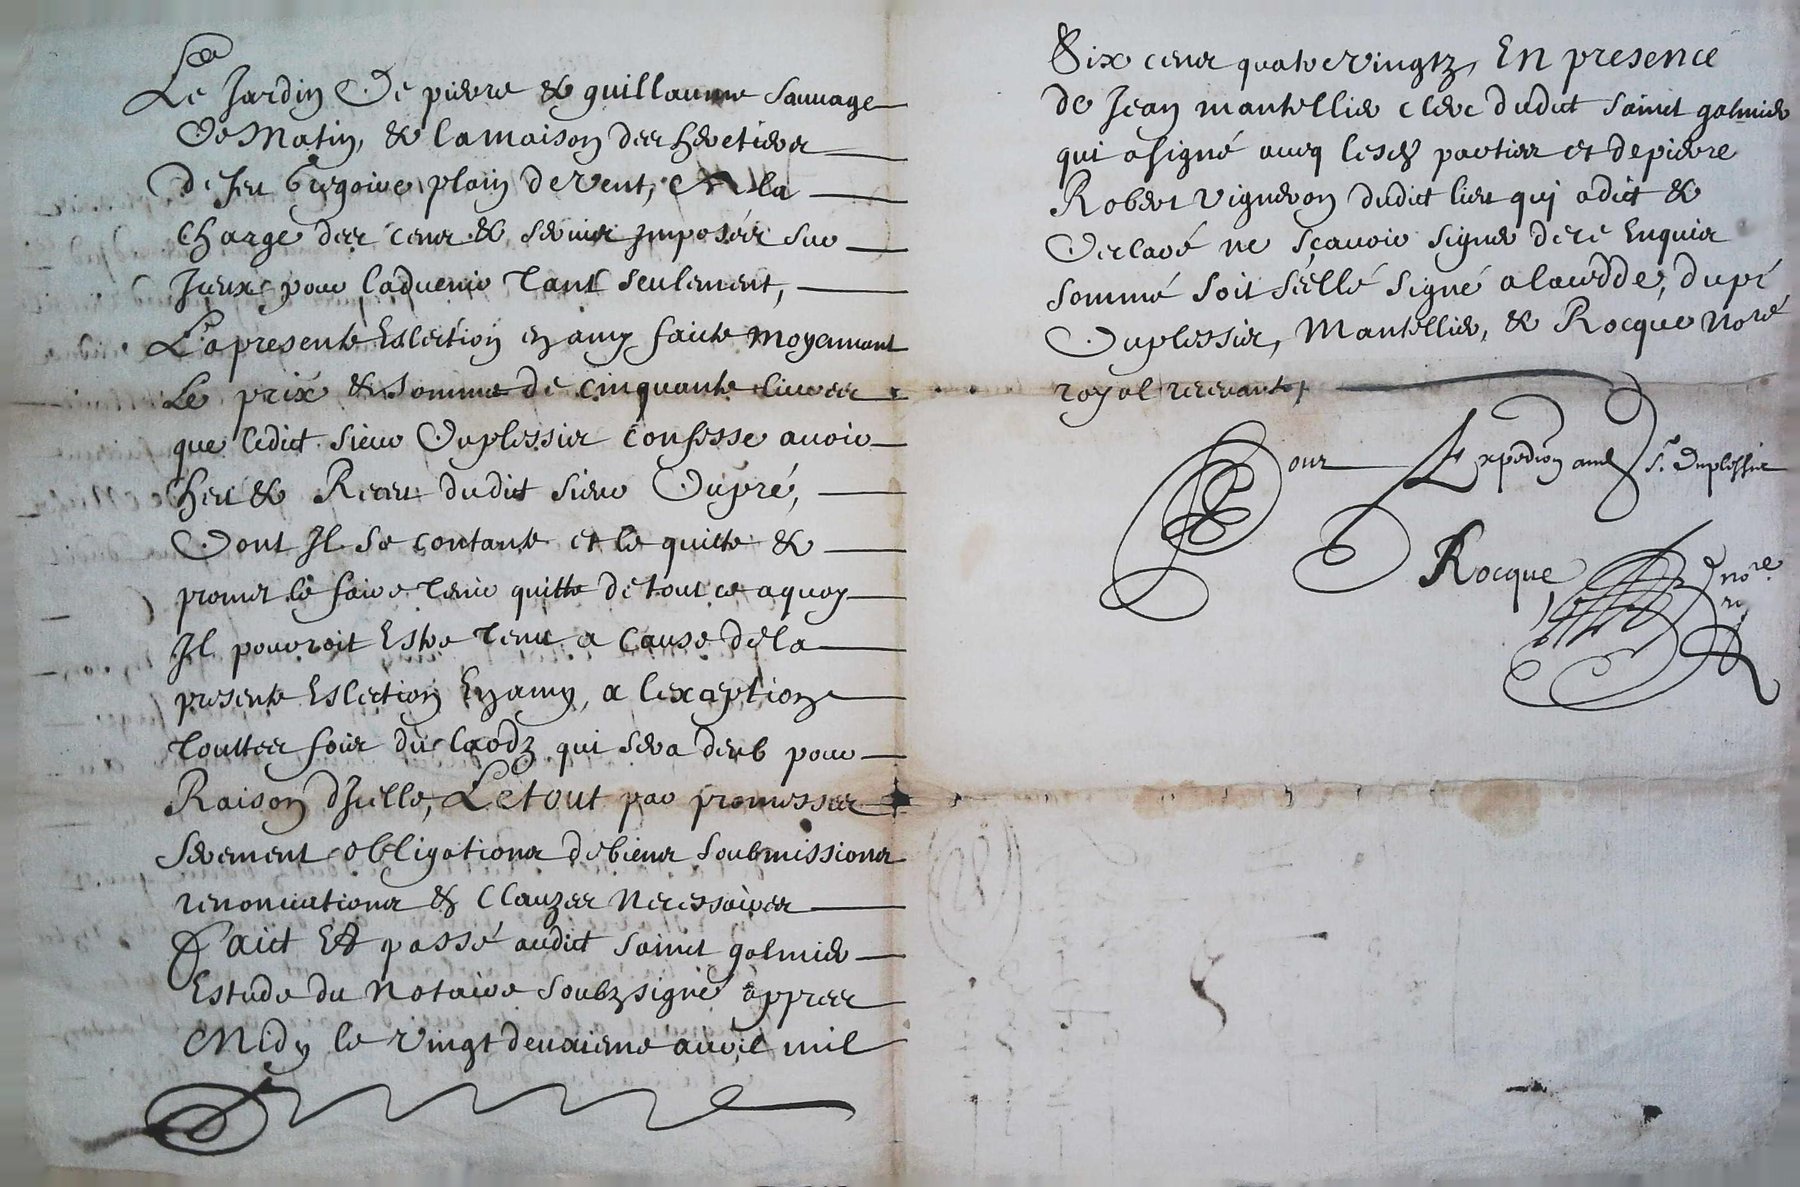 Le Jardin De pierre & guillaume sauvage
De Matin, & la maison des heretiers
de feu Gregoire plain de vent, Et la
Charge des cens & servis Imposés sur
Iceux pour ladvenir tant seulement,
La presente Eslection en amy faicte moyennant
Le prix & somme de cinquante livres
que ledict sieur Duplessis confesse avoir
heu & Receu dudit sieur Dupré,
Dont Il se contante et le quitte &
promet le faire tenir quitte de tout ce aquoy
Il pourroit Estre tenu a Cause de la
presente Eslection En amy, a lexception
touttes fois du laodz qui sera deub pour
Raison dIcelle, Le tout par promesses
serement obligations de biens soubmissions
renonciations & Clauzes necessaires
Faict Et passé audict sainct galmier
Estude du Notaire soubzsigné appres
Midy le vingt deuxieme avril mil
Six cens quatre vingtz, En presence
de Jean mantellier clerc dudict sainct galmier
qui a signé aveq lesdz parties et de pierre
Robert vigneron dudict lieu qui a dict &
Declaré ne sçavoir signer de ce Enquis
sommé soit séellé signé a la cedde, dupré
Duplessis, Mantellier, & Rocque Nore
royal recevant
Pour Expedion audt Sr. Duplessis
Rocque nore